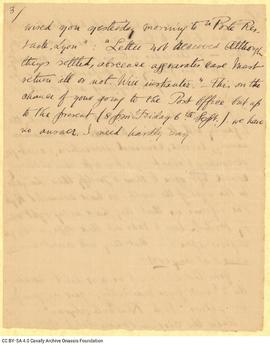 3/
wired you yesterday morning to "Poste Res-
tante, Lyon": "Letter not received Although
things settled, abscess aggravates case Must
return itt or not. Wire instanter." - This, on the
chance of your going to the Post Office but up
to the present (8 pm Friday 6th Sept.) we have
no answer. I need hardly say
CC BY-SA 4.0 Cavafy Archive Onassis Foundation